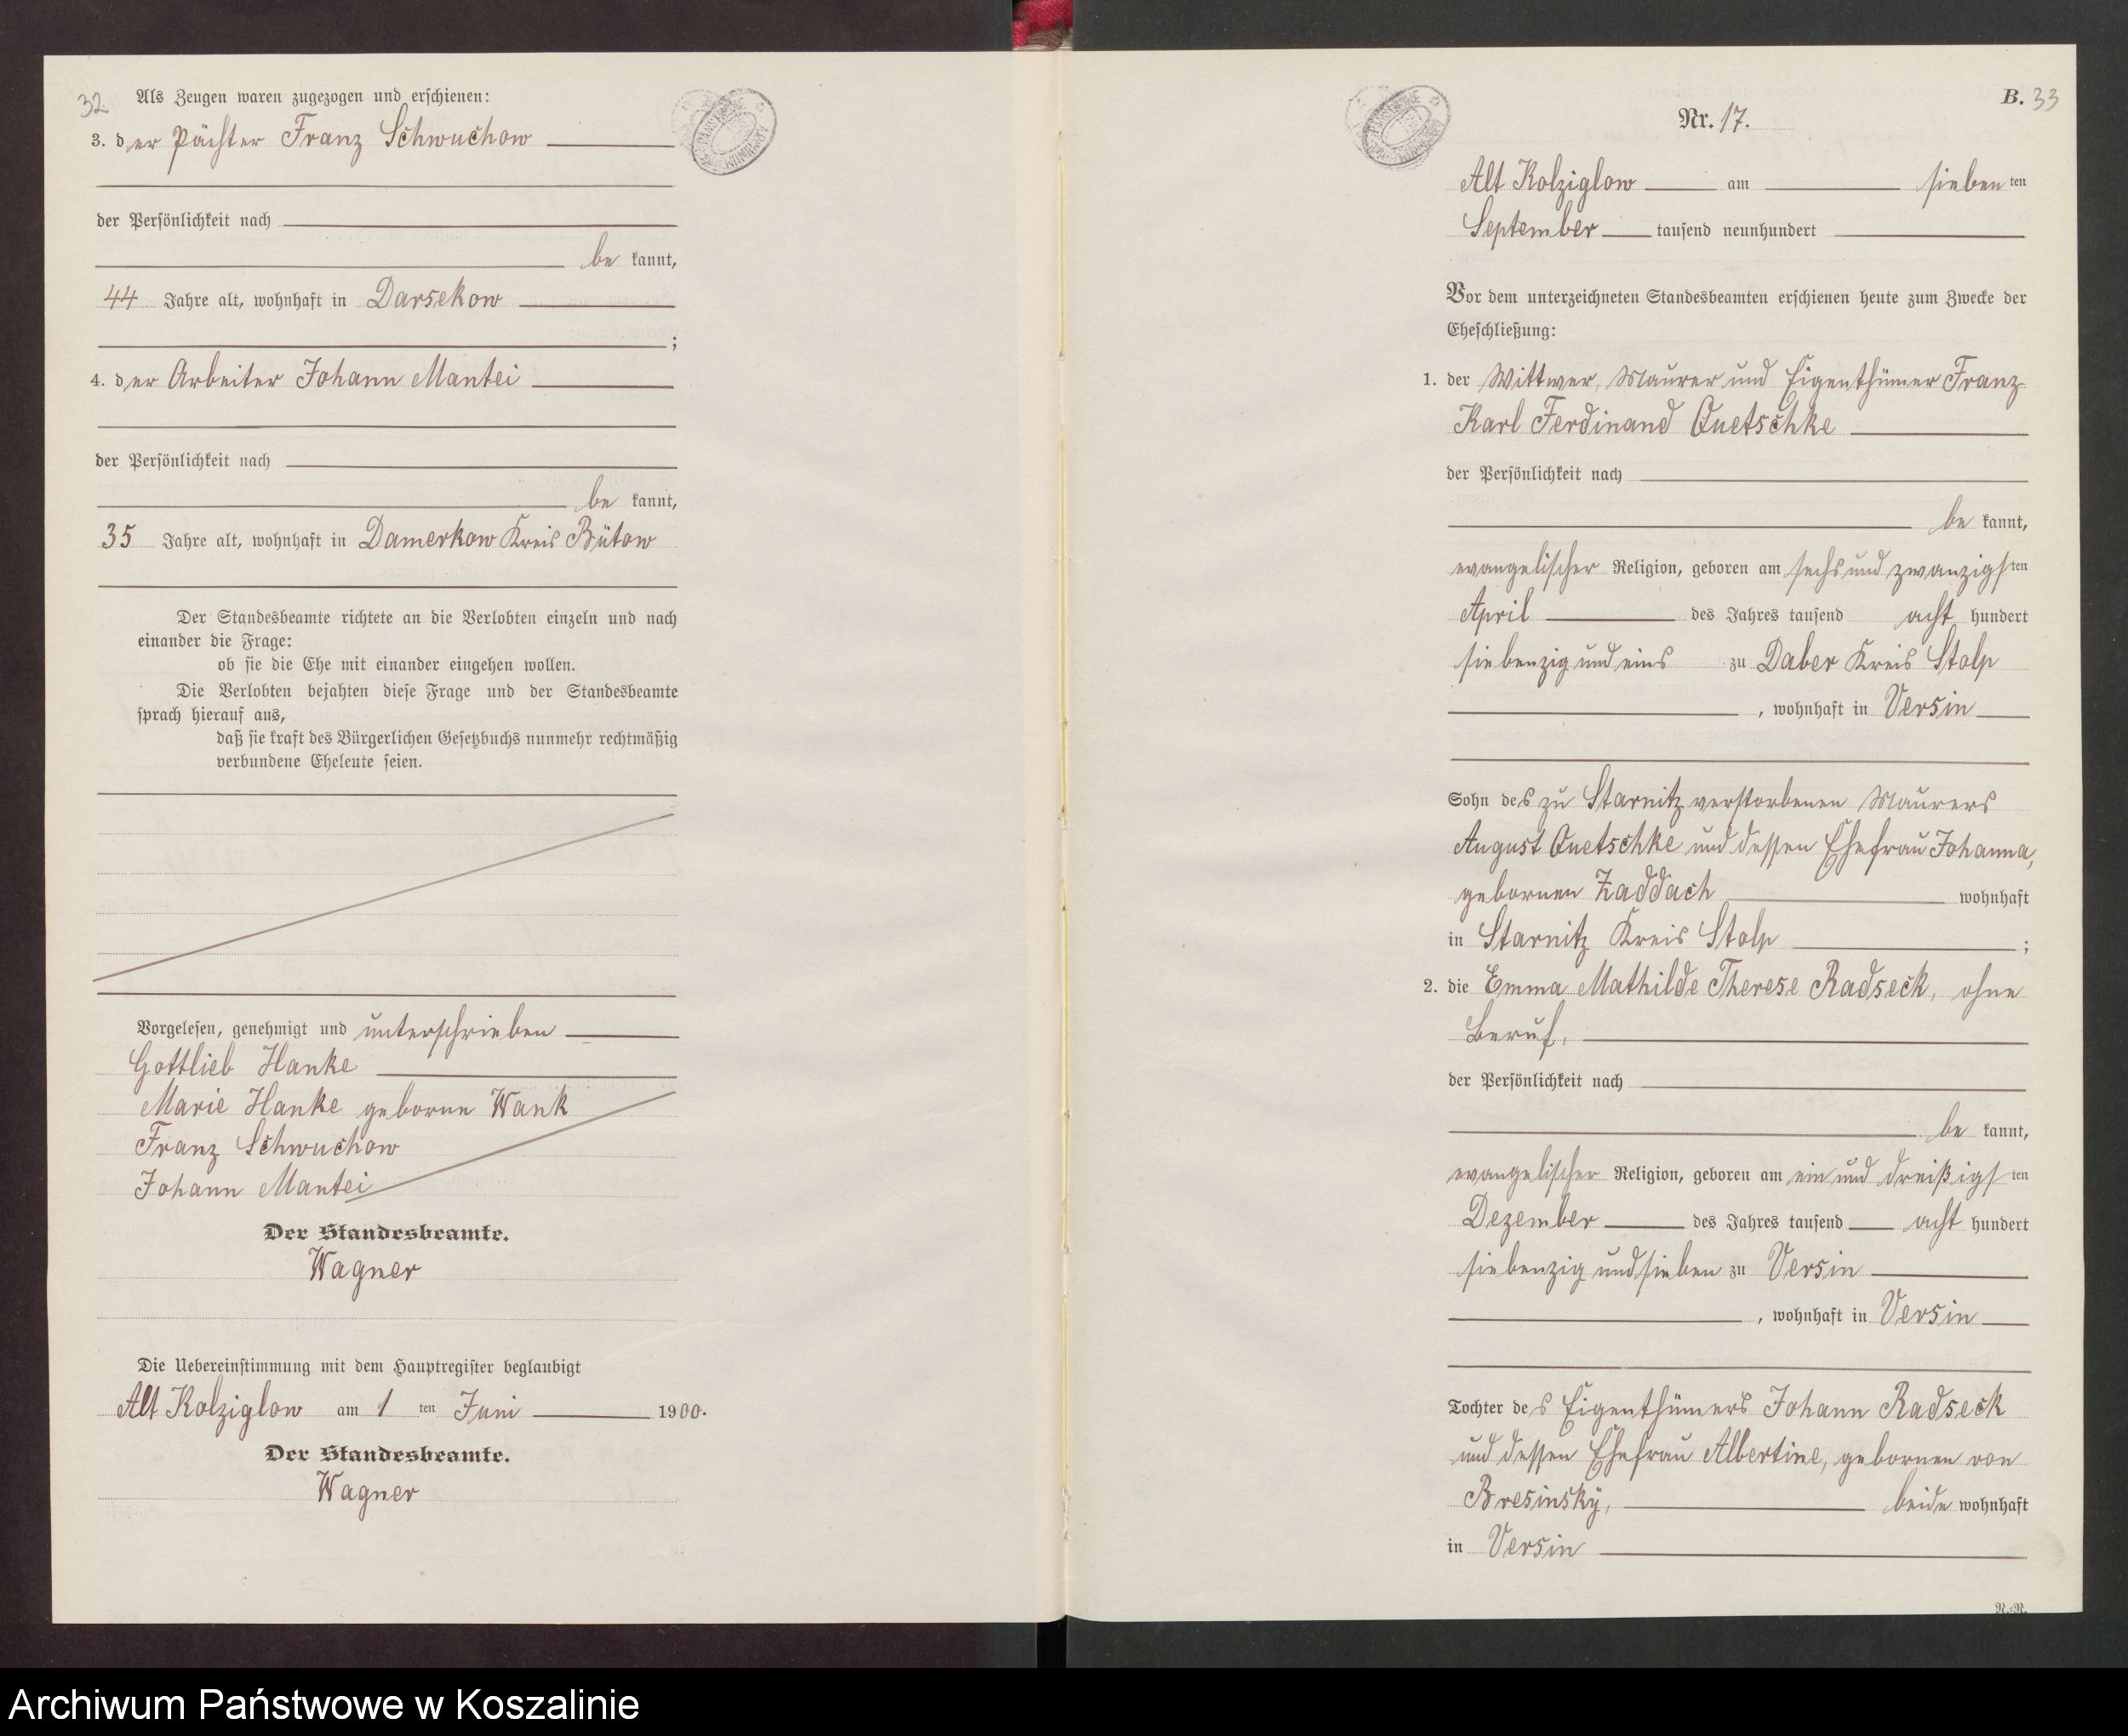 32
Als Zeugen waren zugezogen und erschienen:
3. der Pächter Franz Schwuchow
der Persönlichkeit nach
be kannt,
44 Jahre alt, wohnhaft in Darsekow
;
4. der Arbeiter Johann Mantei
der Persönlichkeit nach
be kannt,
35 Jahre alt, wohnhaft in Damerkow Kreis Bütow
Der Standesbeamte richtete an die Verlobten einzeln und nach
einander die Frage:
ob sie die Ehe mit einander eingehen wollen.
Die Verlobten bejahten diese Frage und der Standesbeamte
sprach hierauf aus,
daß sie kraft des Bürgerlichen Gesetzbuchs nunmehr rechtmäßig
verbundene Eheleute seien.
Vorgelesen, genehmigt und unterschrieben
Gottlieb Hanke
Marie Hanke geborne Wank
Franz Schwuchow
Johann Mantei
Der Standesbeamte.
Wagner
Die Uebereinstimmung mit dem Hauptregister beglaubigt
Alt Kolziglow am 1 ten Juni 1900.
Der Standesbeamte.
Wagner
B. 33
Nr. 17.
Alt Kolziglow am sieben ten
September tausend neunhundert
Vor dem unterzeichneten Standesbeamten erschienen heute zum Zwecke der
Eheschließung:
1. der Wittwer, Maurer und Eigenthümer Franz
Karl Ferdinand Quetschke
der Persönlichkeit nach
be kannt,
evangelischer Religion, geboren am sechs und zwanzigsten
April des Jahres tausend acht hundert
siebenzig und eins zu Daber Kreis Stolp
, wohnhaft in Versin
Sohn des zu Starnitz verstorbenen Maurers
August Quetschke und dessen Ehefrau Johanna,
gebornen Zaddach wohnhaft
in Starnitz Kreis Stolp ;
2. die Emma Mathilde Therese Radseck, ohne
Beruf,
der Persönlichkeit nach
be kannt,
evangelischer Religion, geboren am ein und dreißigsten
Dezember des Jahres tausend acht hundert
siebenzig und sieben zu Versin
, wohnhaft in Versin
Tochter des Eigenthümers Johann Radseck
und dessen Ehefrau Albertine, gebornen von
Bresinsky, beide wohnhaft
in Versin
R.-R.
Archiwum Państwowe w Koszalinie